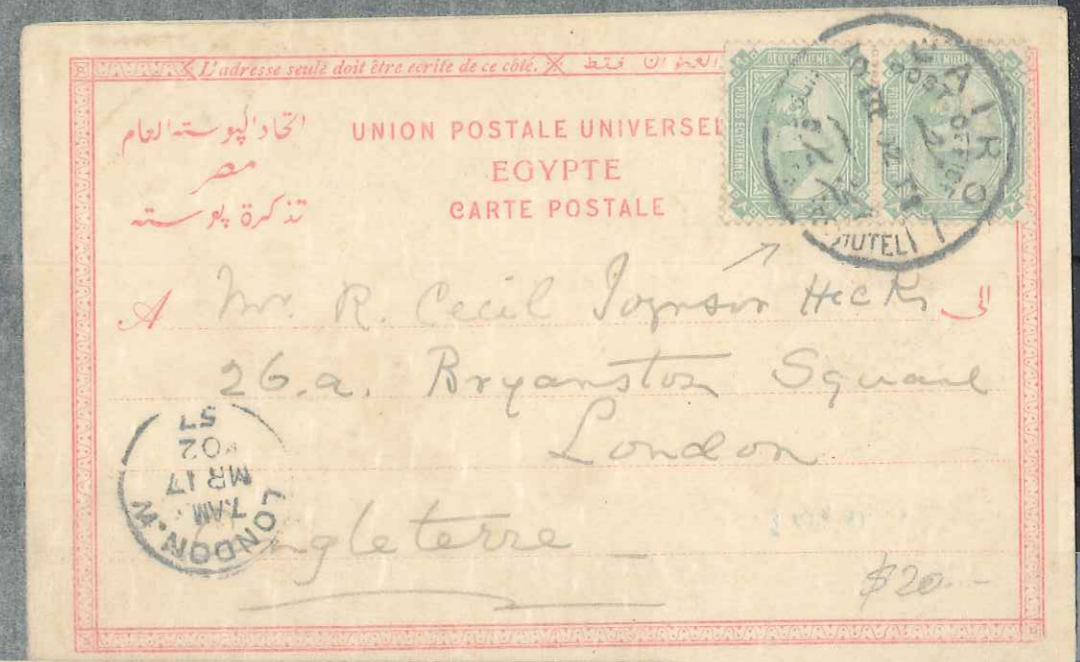 L'adresse seule doit être ecrite de ce côté.
العنوان فقط
اتحاد البوسته العام
مصر
تذكرة بوسته
UNION POSTALE UNIVERSEL
EGYPTE
CARTE POSTALE
CAIRO
HOTEL
A Mr. R. Cecil Joynson Hicks الى
26.a. Bryanston Square
London
Angleterre
LONDON.W.
7.AM
MR 17
02
57
$20